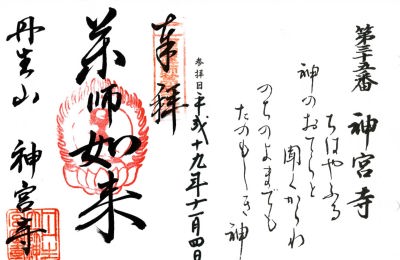 第三十五番 神宮寺
ちはやふる
神のおてらと
聞くからわ
のちのよまでも
たのもしき神
参拝日 平成十九年十一月四日
奉拝
薬師如来
丹生山 神宮寺